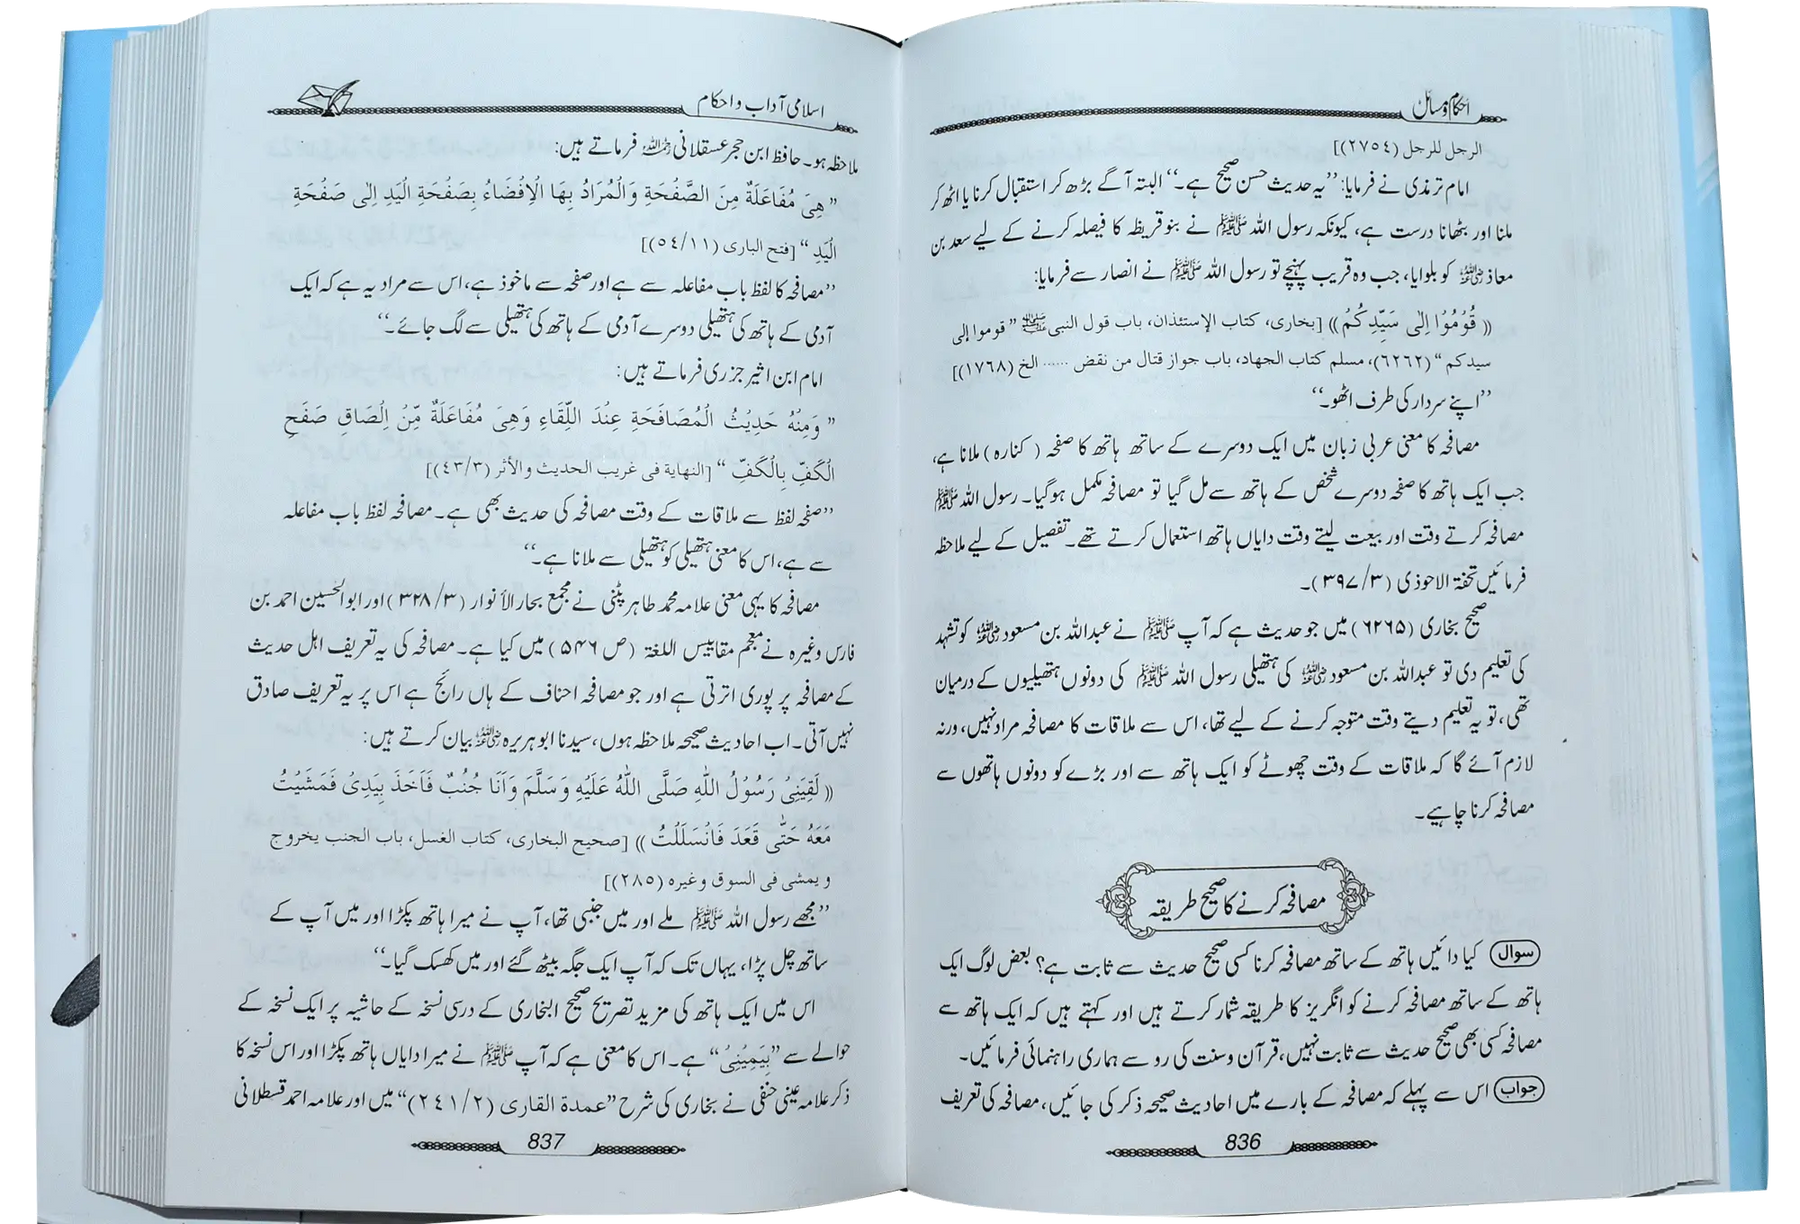 احکام و مسائل
الرجل للرجل (٢٧٥٤)]
امام ترمذی نے فرمایا: ’’یہ حدیث حسن صحیح ہے۔‘‘ البتہ آگے بڑھ کر استقبال کرنا یا اٹھ کر
ملنا اور بٹھانا درست ہے، کیونکہ رسول اللہ ﷺ نے بنو قریظہ کا فیصلہ کرنے کے لیے سعد بن
معاذ رضی اللہ عنہ کو بلوایا، جب وہ قریب پہنچے تو رسول اللہ ﷺ نے انصار سے فرمایا:
(( قُوْمُوْا اِلٰى سَيِّدِكُمْ )) [بخارى، كتاب الإستئذان، باب قول النبى ﷺ ” قوموا إلى
سيدكم “ (٦٢٦٢)، مسلم كتاب الجهاد، باب جواز قتال من نقض ...... الخ (١٧٦٨)]
’’اپنے سردار کی طرف اٹھو۔‘‘
مصافحہ کا معنی عربی زبان میں ایک دوسرے کے ساتھ ہاتھ کا صفحہ ( کنارہ ) ملانا ہے،
جب ایک ہاتھ کا صفحہ دوسرے شخص کے ہاتھ سے مل گیا تو مصافحہ مکمل ہوگیا۔ رسول اللہ ﷺ
مصافحہ کرتے وقت اور بیعت لیتے وقت دایاں ہاتھ استعمال کرتے تھے۔ تفصیل کے لیے ملاحظہ
فرمائیں تحفۃ الاحوذی (۳۹۷/۳)۔
صحیح بخاری (۶۲۶۵) میں جو حدیث ہے کہ آپ ﷺ نے عبداللہ بن مسعود رضی اللہ عنہ کو تشہد
کی تعلیم دی تو عبداللہ بن مسعود رضی اللہ عنہ کی ہتھیلی رسول اللہ ﷺ کی دونوں ہتھیلیوں کے درمیان
تھی، تو یہ تعلیم دیتے وقت متوجہ کرنے کے لیے تھا، اس سے ملاقات کا مصافحہ مراد نہیں، ورنہ
لازم آئے گا کہ ملاقات کے وقت چھوٹے کو ایک ہاتھ سے اور بڑے کو دونوں ہاتھوں سے
مصافحہ کرنا چاہیے۔
مصافحہ کرنے کا صحیح طریقہ
سوال کیا دائیں ہاتھ کے ساتھ مصافحہ کرنا کسی صحیح حدیث سے ثابت ہے؟ بعض لوگ ایک
ہاتھ کے ساتھ مصافحہ کرنے کو انگریز کا طریقہ شمار کرتے ہیں اور کہتے ہیں کہ ایک ہاتھ سے
مصافحہ کسی بھی صحیح حدیث سے ثابت نہیں، قرآن و سنت کی رو سے ہماری راہنمائی فرمائیں۔
جواب اس سے پہلے کہ مصافحہ کے بارے میں احادیث صحیحہ ذکر کی جائیں، مصافحہ کی تعریف
836
اسلامی آداب و احکام
ملاحظہ ہو۔ حافظ ابن حجر عسقلانی رحمہ اللہ فرماتے ہیں:
” هِىَ مُفَاعَلَةٌ مِنَ الصَّفْحَةِ وَالْمُرَادُ بِهَا الْاِفْضَاءُ بِصَفْحَةِ الْيَدِ اِلٰى صَفْحَةِ
الْيَدِ “ [فتح البارى (٥٤/١١)]
’’مصافحہ کا لفظ باب مفاعلہ سے ہے اور صفحہ سے ماخوذ ہے، اس سے مراد یہ ہے کہ ایک
آدمی کے ہاتھ کی ہتھیلی دوسرے آدمی کے ہاتھ کی ہتھیلی سے لگ جائے۔‘‘
امام ابن اثیر جزری فرماتے ہیں:
” وَمِنْهُ حَدِيْثُ الْمُصَافَحَةِ عِنْدَ اللِّقَاءِ وَهِىَ مُفَاعَلَةٌ مِّنْ اِلْصَاقِ صَفْحِ
الْكَفِّ بِالْكَفِّ “ [النهاية فى غريب الحديث والأثر (٤٣/٣)]
’’صفحہ لفظ سے ملاقات کے وقت مصافحہ کی حدیث بھی ہے۔ مصافحہ لفظ باب مفاعلہ
سے ہے، اس کا معنی ہتھیلی کو ہتھیلی سے ملانا ہے۔‘‘
مصافحہ کا یہی معنی علامہ محمد طاہر پٹنی نے مجمع بحار الأنوار (۳۲۸/۳) اور ابوالحسین احمد بن
فارس وغیرہ نے معجم مقاییس اللغۃ (ص ۵۴۶) میں کیا ہے۔ مصافحہ کی یہ تعریف اہل حدیث
کے مصافحہ پر پوری اترتی ہے اور جو مصافحہ احناف کے ہاں رائج ہے اس پر یہ تعریف صادق
نہیں آتی۔ اب احادیث صحیحہ ملاحظہ ہوں، سیدنا ابو ہریرہ رضی اللہ عنہ بیان کرتے ہیں:
(( لَقِيَنِىْ رَسُوْلُ اللّٰهِ صَلَّى اللّٰهُ عَلَيْهِ وَسَلَّمَ وَاَنَا جُنُبٌ فَاَخَذَ بِيَدِىْ فَمَشَيْتُ
مَعَهُ حَتّٰى قَعَدَ فَانْسَلَلْتُ )) [صحيح البخارى، كتاب الغسل، باب الجنب يخروج
و يمشى فى السوق وغيره (٢٨٥)]
’’مجھے رسول اللہ ﷺ ملے اور میں جنبی تھا، آپ نے میرا ہاتھ پکڑا اور میں آپ کے
ساتھ چل پڑا، یہاں تک کہ آپ ایک جگہ بیٹھ گئے اور میں کھسک گیا۔‘‘
اس میں ایک ہاتھ کی مزید تصریح صحیح البخاری کے درسی نسخہ کے حاشیہ پر ایک نسخہ کے
حوالے سے ”بِيَمِيْنِىْ“ ہے۔ اس کا معنی ہے کہ آپ ﷺ نے میرا دایاں ہاتھ پکڑا اور اس نسخہ کا
ذکر علامہ عینی حنفی نے بخاری کی شرح ”عمدة القارى (٢٤١/٢)“ میں اور علامہ احمد قسطلانی
837